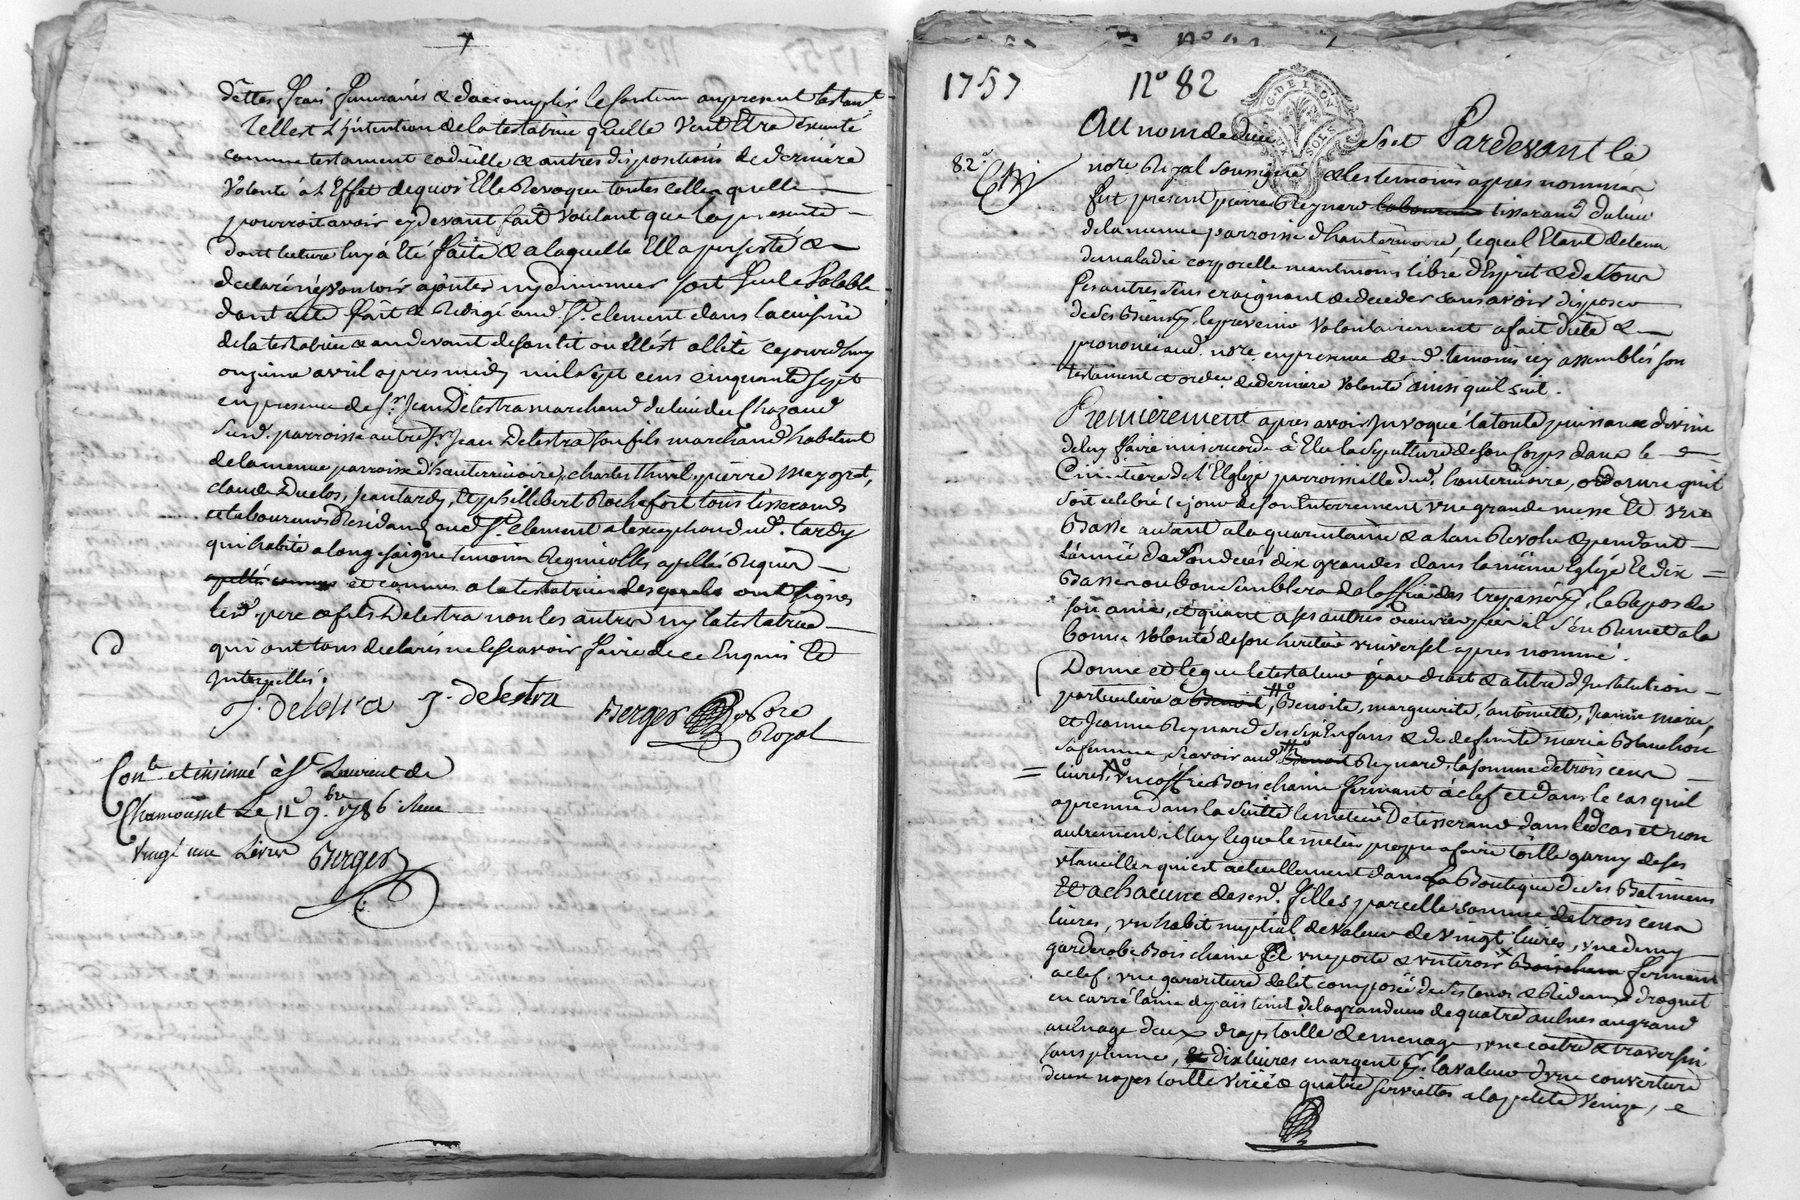 dettes frais funeraires & d'accomplir le contenu au present testamt
telle est l'jntention de la testatrice qu'elle veut Etre éxecuté
comme testament codicille & autres dispositions de derniere
volonté à l'Effet de quoi Elle Revoque toutes celles quelle
pourroit avoir cydevant fait voulant que la presente
dont lecture luy à Eté faite & a laquelle Ella a persisté &
declaré n'y vouloir ajouter ny diminuer soit seule valable
dont acte fait & Redigé aud. St. clement dans la cuisine
de la testatrice & au devant de son lit ou ell'est allitée cejourd'huy
onzieme avril apres midy mil sept cens cinquante sept
en presence de sr. Jean Delestra marchand du lieu du Chazaud
susd. parroisse autre sr. Jean Delestra son fils marchand habitent
de la meme parroisse d'hauterivoire, charles thivel, pierre meygret,
claude Duclos, Jean tardy, Et philibert Rochefort tous tisserands
et laboureurs Residants aud St. clement a l'exception dud. tardy
qui habite a longesaigne temoins Regnicolles apellés Requis
apellés connus et connus a la testatrice desquels ont signes
lesd. pere & fils Delestra non les autres ny la testatrice
qui ont tous declarés ne le scavoir faire de ce Enquis Et
jnterpellés.
J. Delestra J. delestra Berger Nore
Royal
Conlé et insinué à St Laurent de
Chamousset Le 11 9.bre 1786 Reçu
vingt une Livres Berger
1757 No 82
G. DE LYON
SOLS
Au nom de dieu soit Pardevant le
82.e
nore Royal soussigné & les temoins apres nommés
fut present pierre Reynard laboureur tisserand du lieu
de la meme parroisse d'hauterivoire, lequel Etant detenu
de maladie corporelle neantmoins libre d'Esprit & de tous
ses autres sens craignant de deceder sans avoir disposer
de ses Biens pr. le prevenir volontairement a fait dicté &
prononcé aud. nore. en presence desd. temoins icy assemblés son
testament et ordce de derniere volonté ainsi quil suit.
Premierement apres avoir jnvoqué la toute puissance divine
de luy faire misericorde à Elu la sepulture de son corps dans le
Cimetiere de l'Eglize parroissialle dud. hauterivoire, ordonne qu'il
soit celebré le jour de son Enterrement une grande messe Et une
Basse autant a la quarantaine & a l'an Revolu & pendant
l'année de son decés dix grandes dans la même Eglize Et dix
Basses ou bon semblera de l'office des trepassés pr. le Repos de
son ame, et quant a ses autres oeuvres pies il s'en Remet a la
bonne volonté de son heritier universel apres nommé.
Donne et legue le testateur par droit & a titre d'jnstitution
particuliere a Benoit, Benoite, marguerite, antoinette, Jeanne marie,
et Jeanne Reynard ses six Enfans & de defunte marie Blanchon
sa femme, scavoir aud. Benoit Reynard, la somme de trois cens
livres, un coffre Bois chaine fermant à clef et dans le cas qu'il
aprenne dans la suitte le metier De tisserand dans led cas et non
autrement, il luy legue le metier propre a faire toille garny de ses
utancilles qui est actuellement dans sa Boutique de ses Batimens
Et a chacune de sesd. filles pareille somme de trois cens
livres, un habit nuptial de valeur de vingt livres, une demy
garderobe Bois chaine a une porte & un tiroir Bois chaine fermant
a clef, une garniture de lit composée de ses tours & Rideaux droguet
en carré laine du païs teint de la grandeur de quatre aulnes au grand
aulnage deux draps toille de menage, une coëtre & traversin
sans plume, Et dix livres en argent pr. la valeur d'une couverture
deux napes toille Virée & quatre serviettes a la petite Venize, &